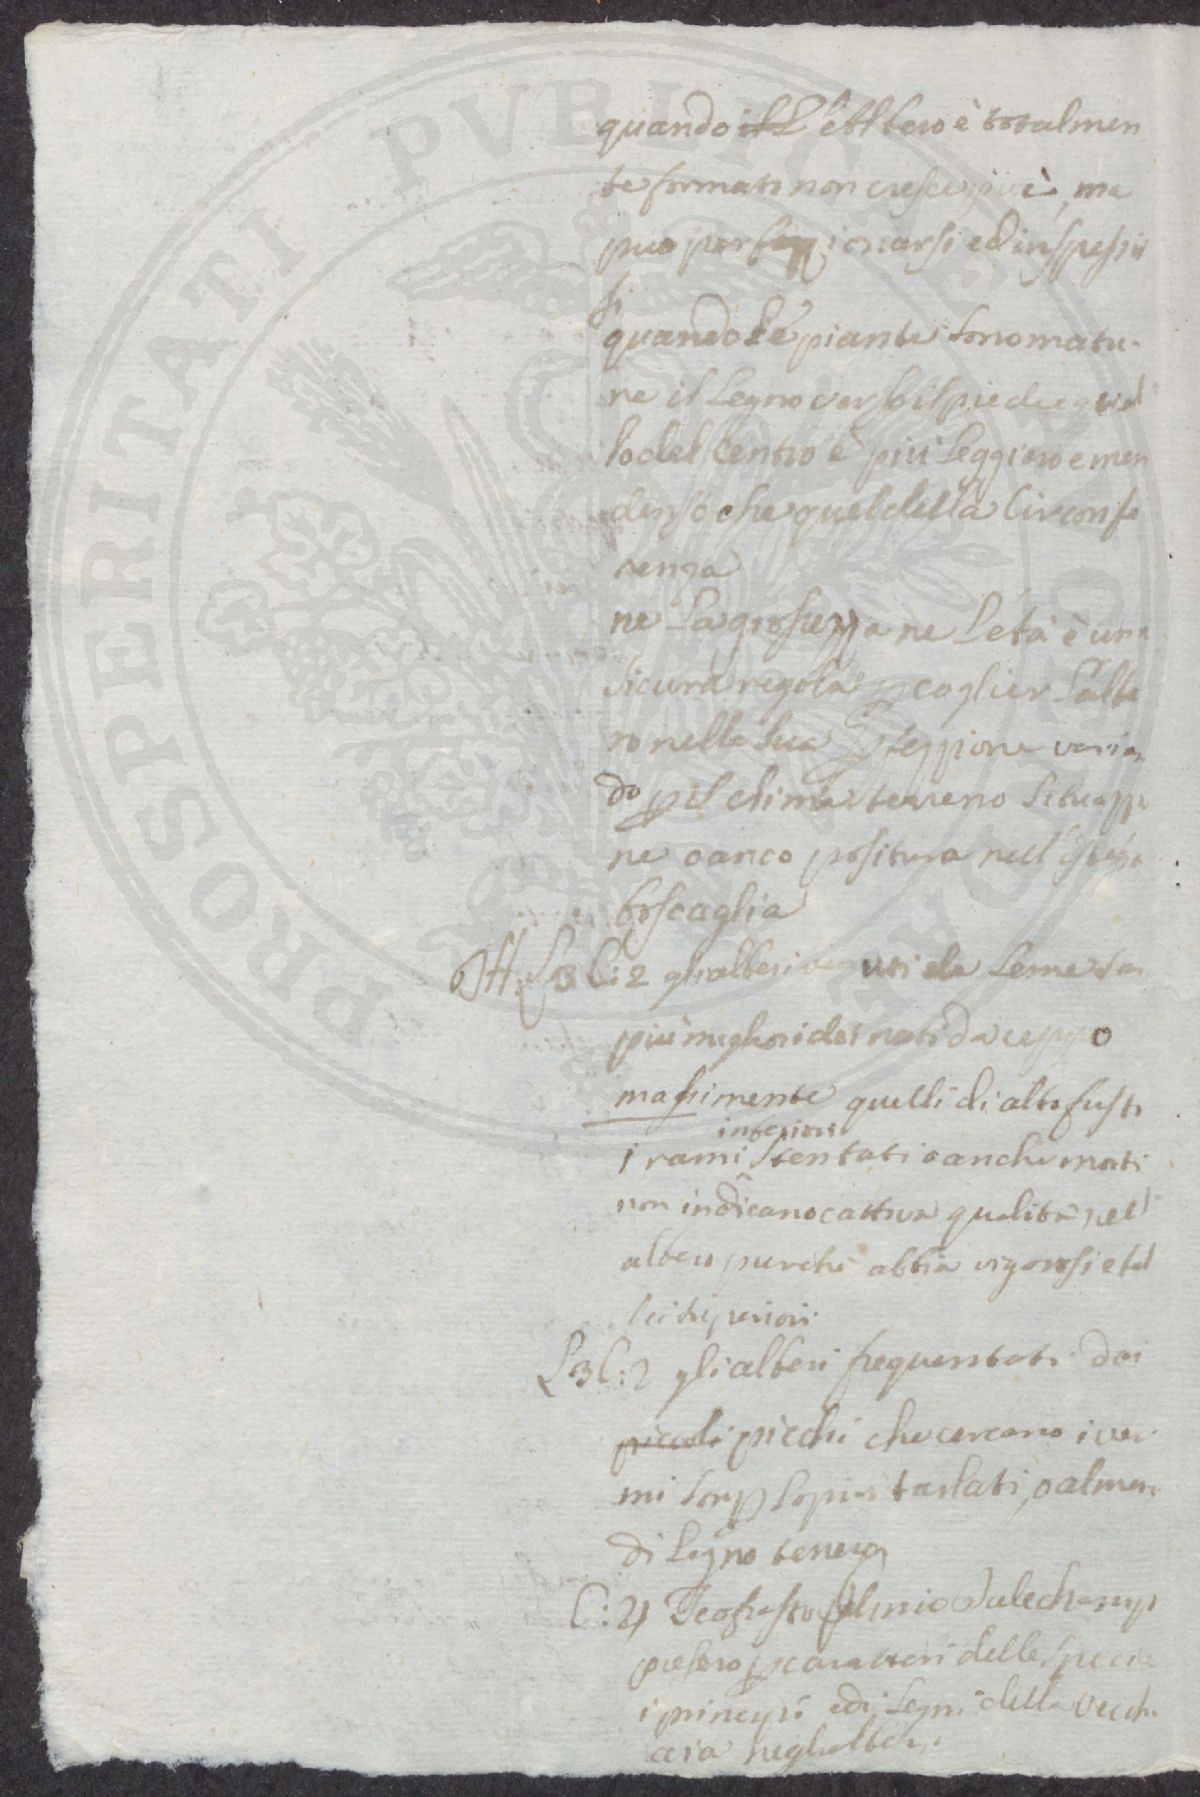 quando il L'albero è totalmen
te formato non cresce più, ma
puo perfezzionarsi ed inspessir
si
quando Le piante sono matu-
re il Legno verso il piede e quel
lo del Centro è più Leggiero e men
denso che quel della Circonfe
renza
ne La grossezza ne L'età è una
sicura regola p coglier L'albe
ro nella sua pfezzione varian
do p il clima terreno situazzio
ne o anco positura nell'istessa
boscaglia
L 3 C: 2 gl'alberi venuti da seme son
più migliori dei nati da ceppo
massimente quelli di alto fusto
inferiori
i rami stentati o anche morti
non indicano cattiva qualità nell'
albero purche abbia vigorosi e bel
li i superiori
L 3 C: 2 gli alberi frequentati dai
piccoli picchi che cercano i ver
mi son p lo più tarlati, o almen
di Legno tenero
C: 2 Teofrasto Plinio Dalechamp
presero p caratteri delle specie
i principi ed i segni della vecch
aia negl'alberi.
PROSPERITATI PVBLICAE